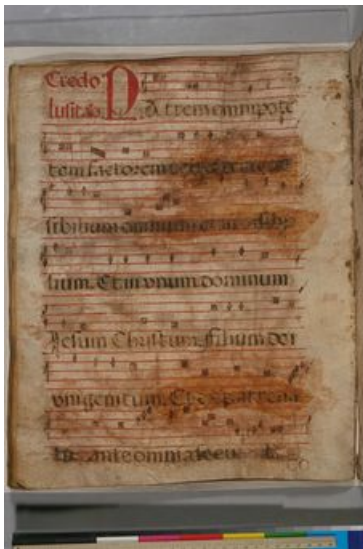 Credo
lusitão. PAtrem omnipotẽ
tem factorem celi et terre
sibilium omnium et invisibi
lium. Et in vnum dominum
Jesum Christum. filium dei
vnigenitum. Et ex patre na
tũ. ante omnia secu